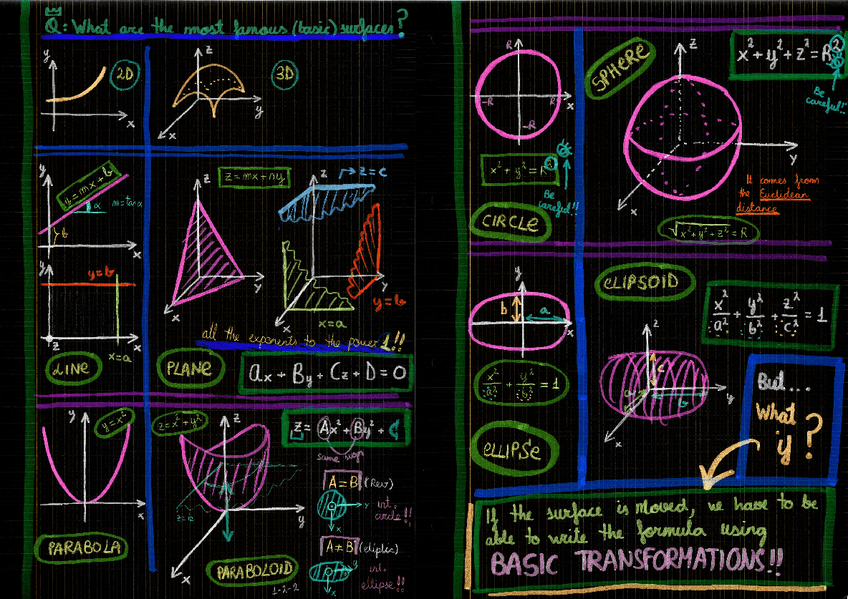 Q: What are the most famous (basic) surfaces?
y
2D
x
z
3D
y
x
y = mx + b
α
m = tan α
b
x
y
y = b
z
x = a
x
LINE
z = mx + ny
z
y
x
z = c
y = b
x = a
all the exponents to the power 1!!
PLANE
Ax + By + Cz + D = 0
y
y = x²
x
PARABOLA
z = x² + y²
z
y
x
PARABOLOID
1-2-2
z = Ax² + By² + C
same sign
A = B (Rev)
int.
circle!!
y
x
A ≠ B (eliptic)
int.
ellipse!!
y
x
R
-R
R
-R
x² + y² = R²
Be
careful!!
CIRCLE
SPHERE
z
y
x
x² + y² + z² = R²
Be
careful!!
It comes from
the Euclidean
distance
√x² + y² + z² = R
y
b
a
x
x²/a² + y²/b² = 1
ELLIPSE
ELIPSOID
z
c
a
b
y
x
x²/a² + y²/b² + z²/c² = 1
But...
What
if?
If the surface is moved, we have to be
able to write the formula using
BASIC TRANSFORMATIONS!!